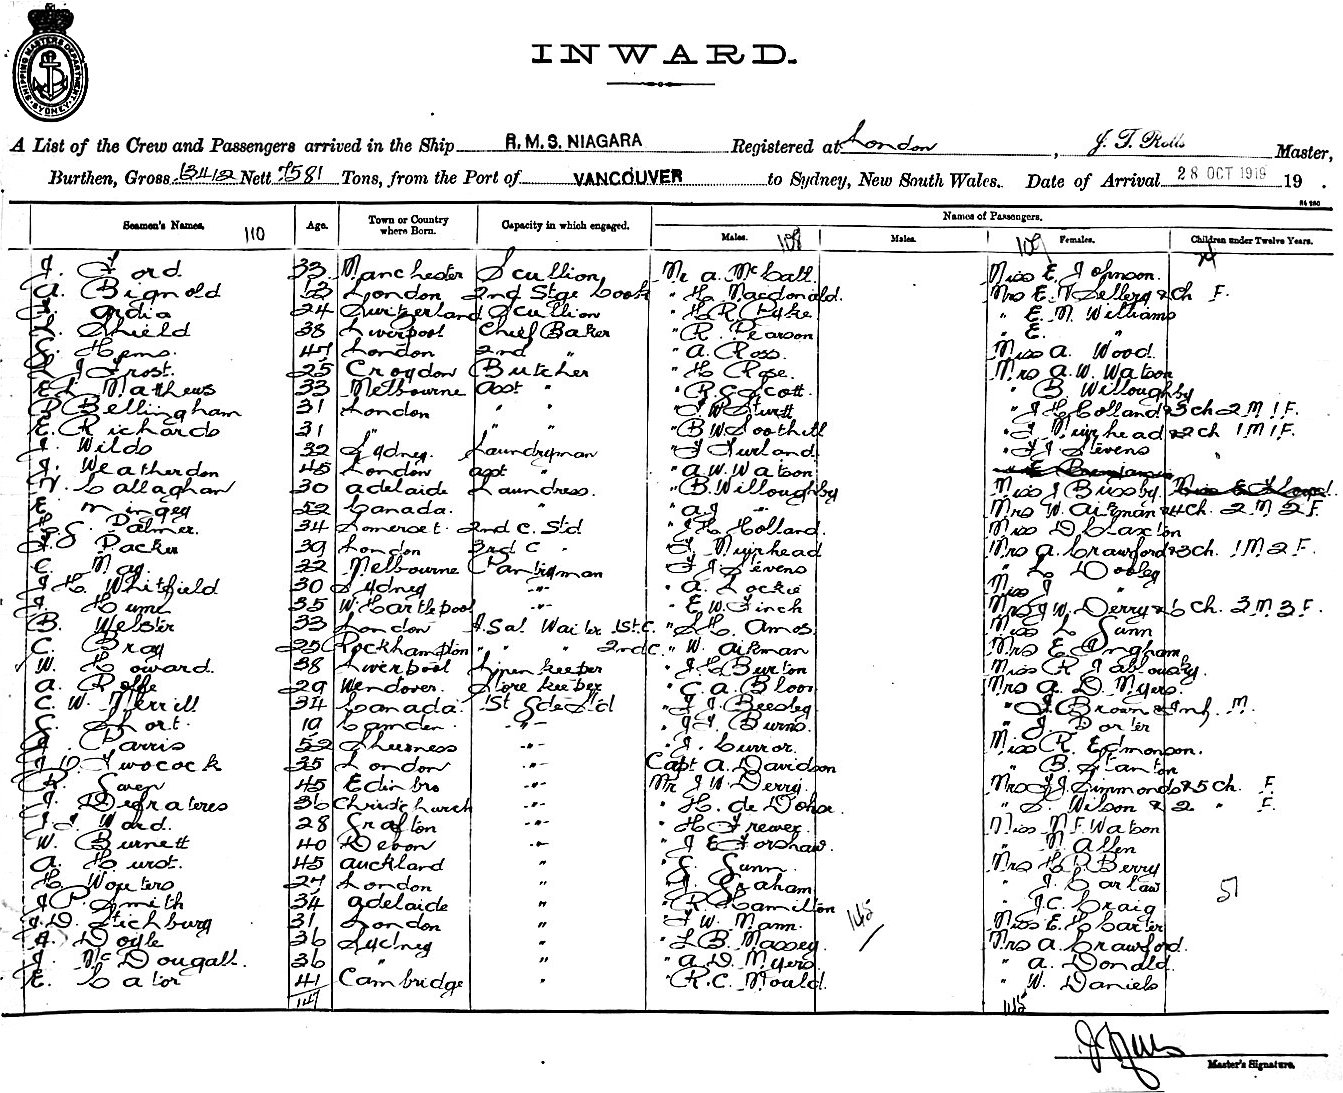 SHIPPING MASTERS DEPARTMENT SYDNEY
INWARD.
A List of the Crew and Passengers arrived in the Ship R.M.S. NIAGARA Registered at London, J. T. Rolls Master,
Burthen, Gross 13415 Nett 7581 Tons, from the Port of VANCOUVER to Sydney, New South Wales. Date of Arrival 28 OCT 1919 19 .
Seamen's Names. 110 Age. Town or Country where Born. Capacity in which engaged. Names of Passengers.
Males. 108 Males. 109 Females. Children under Twelve Years.
J. Ford 33 Manchester Scullion Mr A. McCall Miss E. Johnson.
A. Bignold London 2nd Stge Cook " H. Macdonald. Mrs E. N Sellers & ch F.
ardia 24 Switzerland Scullion " H R Pyke " E. M. Williams
Shield 38 Liverpool Chief Baker " R. Pearson " E. "
Hems. 47 London 2nd " " A. Ross. Miss A. Wood.
J Frost. 25 Croydon Butcher " H Rose. Mrs A. W. Watson
E L Matthews 33 Melbourne Asst " " R G Scott. " B. Willoughby
Bellingham 31 London " " " J. W Sturtt " J H Holland & 3 ch 2 M 1 F.
E. Richards 31 " " " " B W Soothill " J Muirhead & 2 ch 1 M 1 F.
J. Wilds 32 Sydney. Laundryman " J Furland " J J Stevens
J. Weatherdon 45 London Asst " " A. W. Watson
N Callaghan 30 Adelaide Laundress. " B. Willoughby Miss J Bussby.
E. Mingey 52 Canada. " " A. J " Mrs W. Aikman & 4 ch. 2 M 2 F.
H. G. Palmer. 34 Somerset. 2nd C. Std " J H Holland. Miss D Claxton
Packer 39 London 3rd C " " J. Muirhead Mrs A. Crawford & 3 ch. 1 M 2 F.
C. May. 22 Melbourne Pantryman " J J Stevens " L. Dooley
J H Whitfield 30 Sydney -"- " A. Lockie Miss J "
J. Hume 35 W. Hartlepool -"- " E. W. Finch Mrs J W. Derry & 6 ch. 3 M 3 F.
B. Webster 33 London A. Sal Waiter 1st C. " S H. Amos. Miss L Gunn
C. Bray 25 Rockhampton " " " 2nd C. " W. Aikman Mrs E Ingham.
W. Howard. 38 Liverpool Linen keeper " J H Burton Miss R
A. Rolfe 29 Wendover. Store keeper " C A Bloon Mrs A. D. Myers.
C. W. Merrill 34 Canada. 1st S de Std " J J Beesley " J. Brown & Inf. M.
Short. 19 Camden. -"- " J. J Burns. " J. Porter
Parris 52 Sheerness -"- " J. Curror. Miss R. Edmonson.
J. W. Twocock 35 London -"- Capt A. Davidson " B Stanton
R. Swen 45 Edinbro -"- Mr J W. Derry. Mrs J J. Simmonds & 5 ch. F.
J. Degrateres 36 Christchurch -"- " H. de Dohse. " S. Wilson & 2 " F.
J J Ward. 28 Grafton -"- " H Frewer. Miss M F. Watson
W. Burnett 40 Devon -"- " J E Forshaw. " M. Allen
A. Hurst. 45 Auckland -"- " G. Gunn. Mrs H. P. Berry
H. Wouters 27 London " " J. Graham " J. Carlaw 51
J. P. Smith 34 Adelaide " " R Hamilton " J. C. Craig
J. D. Tichburg 31 London " " F W. Mann. 145 Miss E. H. Carter
A. Doyle 36 Sydney " " L. B. Massey. Mrs A. Crawford.
J. McDougall. 36 " " " A. D. Myers " A. Donald.
E. Cator 41 Cambridge " " R. C. Mould. " W. Daniels
147 145
Master's Signature.